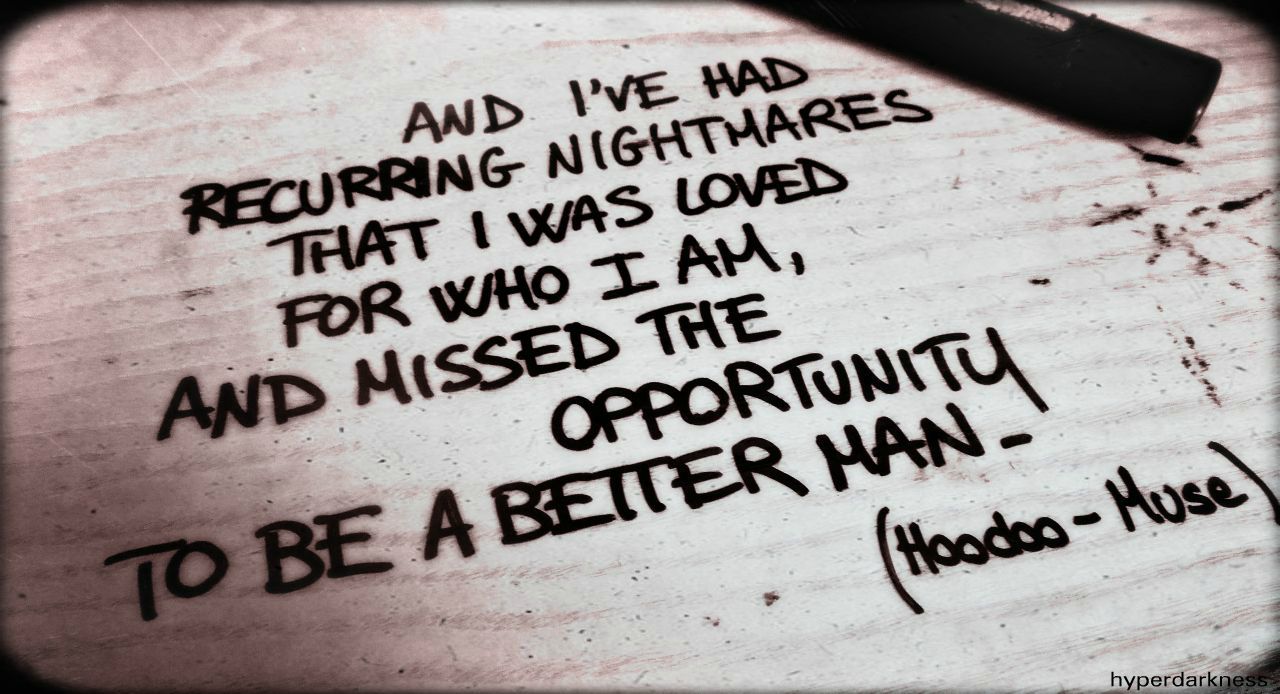 AND I'VE HAD
RECURRING NIGHTMARES
THAT I WAS LOVED
FOR WHO I AM,
AND MISSED THE
OPPORTUNITY
TO BE A BETTER MAN-
(Hoodoo - Muse)
hyperdarkness